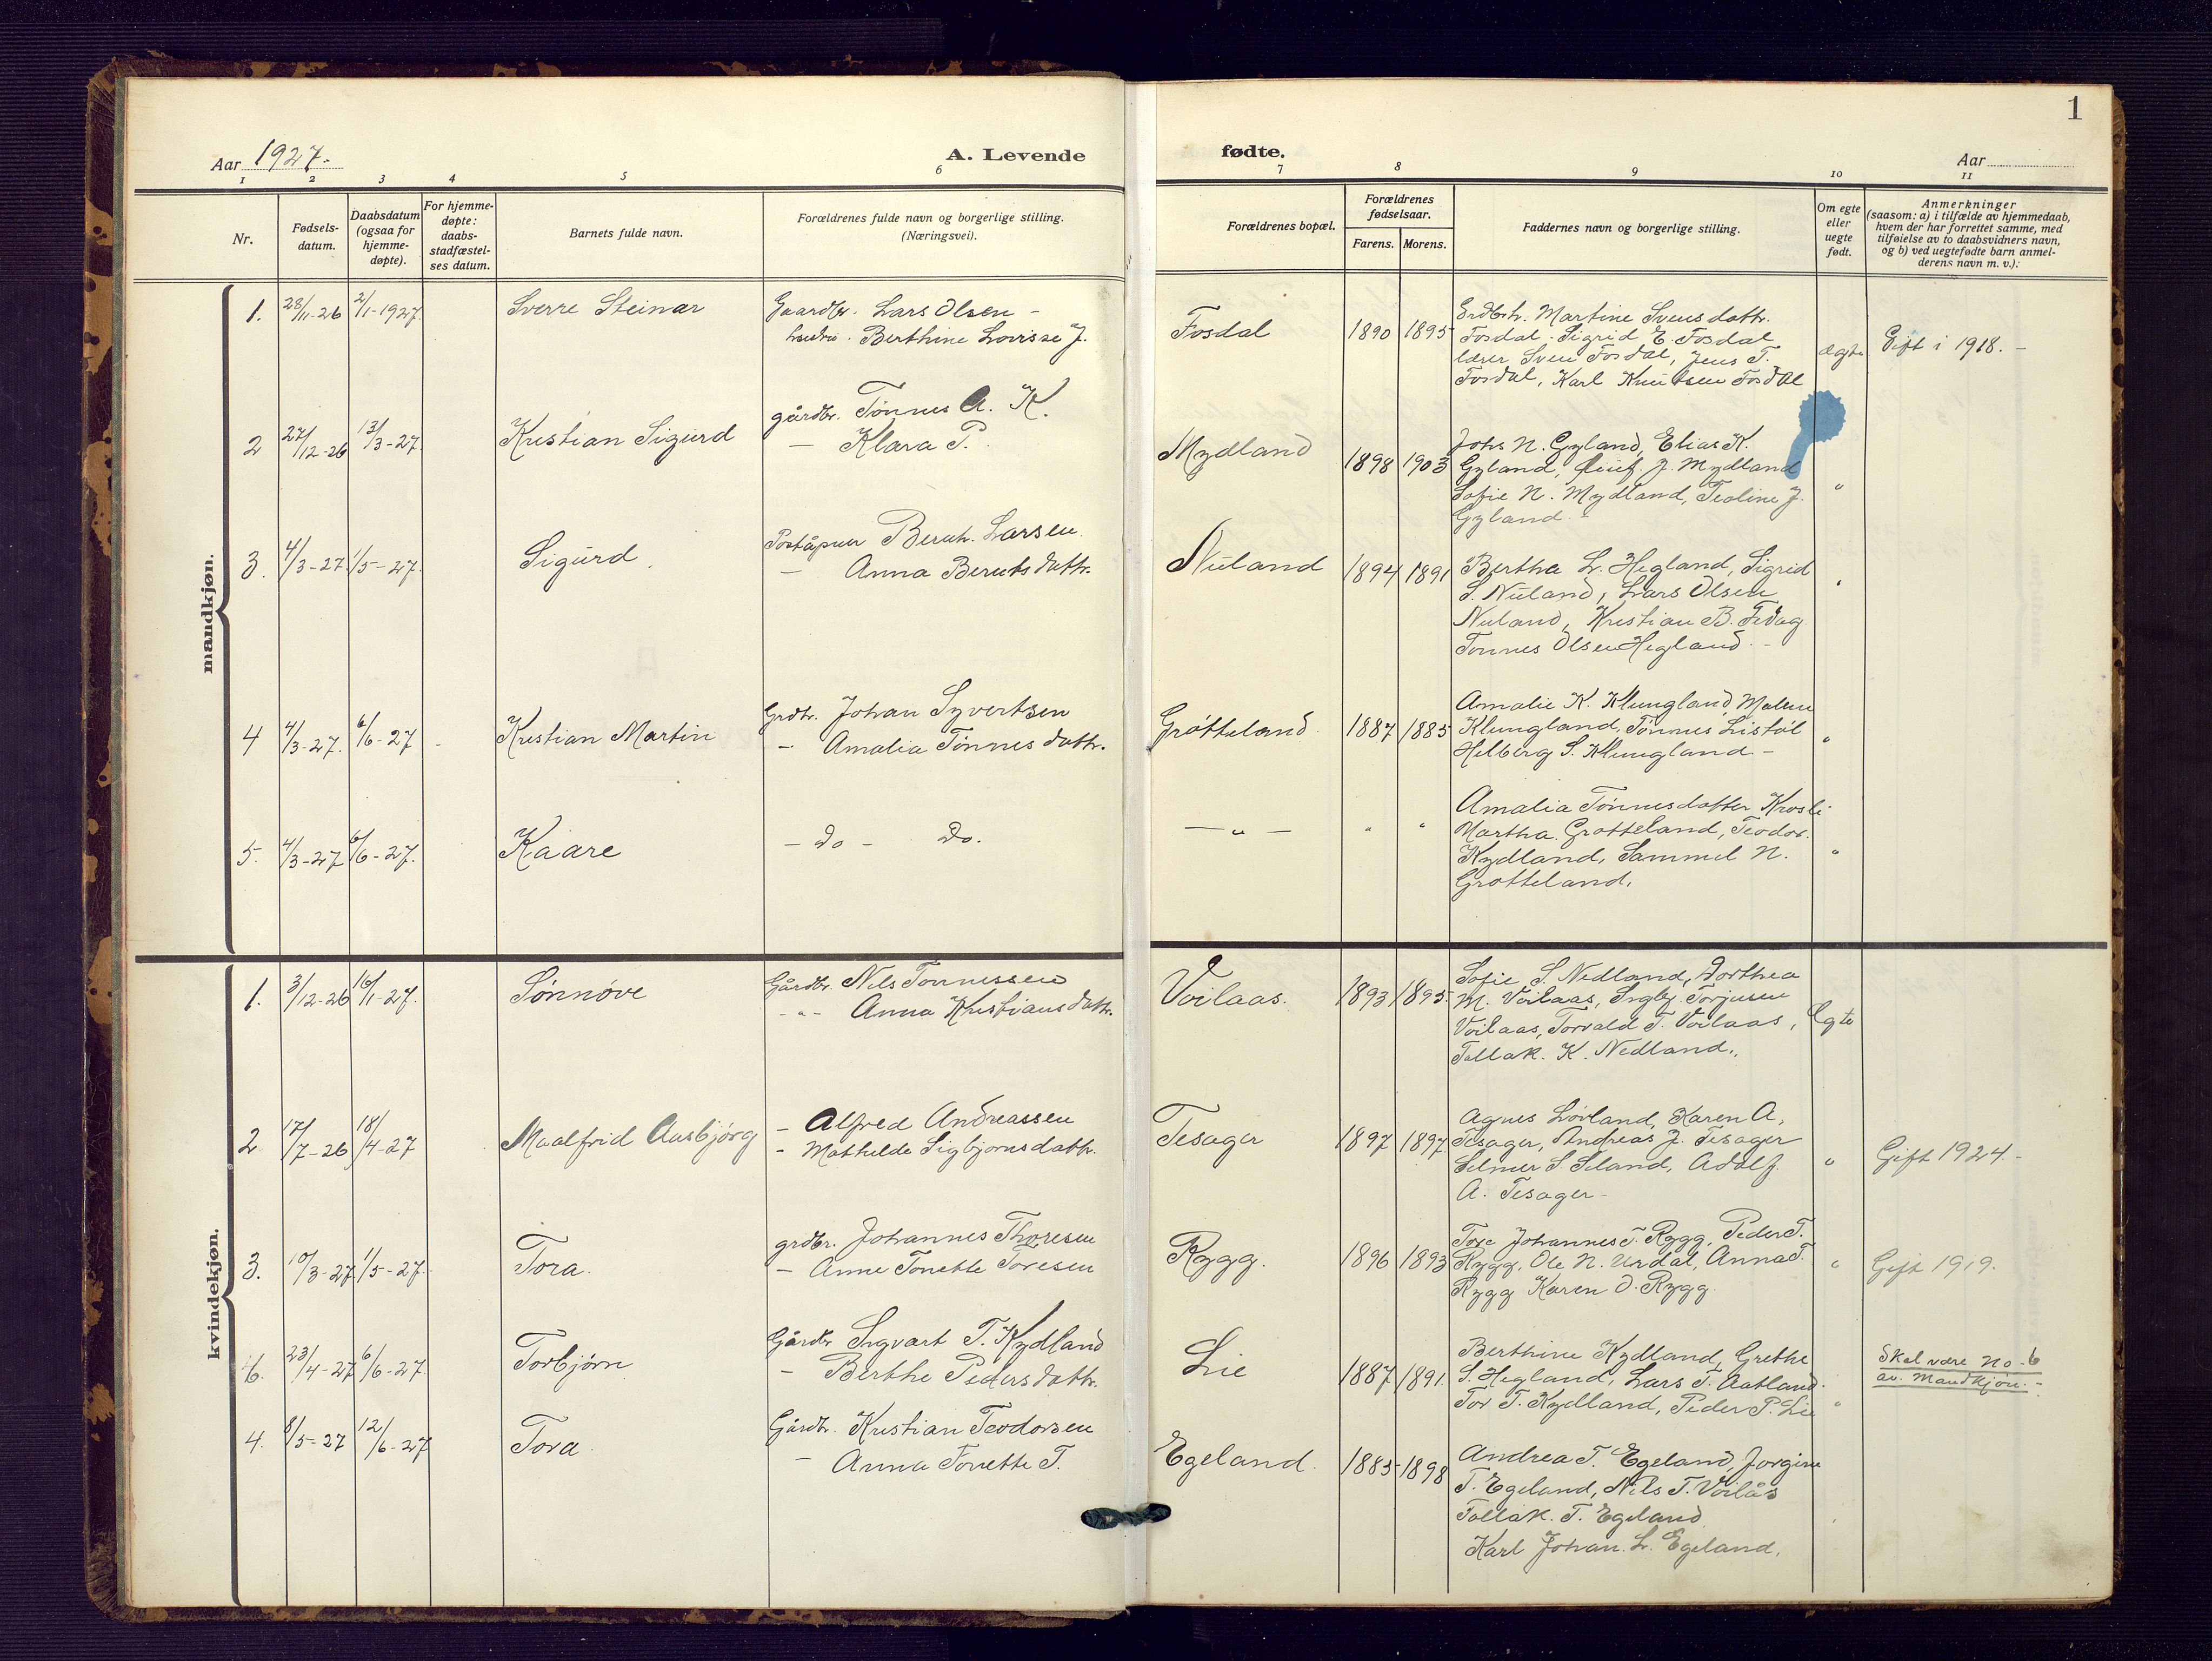 1
Aar 1927.
A. Levende
fødte.
Aar
1 2 3 4 5 6 7 8 9 10 11
Nr.
Fødsels-
datum.
Daabsdatum
(ogsaa for
hjemme-
døpte).
For hjemme-
døpte:
daabs-
stadfæstel-
ses datum.
Barnets fulde navn.
Forældrenes fulde navn og borgerlige stilling.
(Næringsvei).
Forældrenes bopæl.
Forældrenes
fødselsaar.
Farens. Morens.
Faddernes navn og borgerlige stilling.
Om egte
eller
uegte
født.
Anmerkninger
(saasom: a) i tilfælde av hjemmedaab,
hvem der har forrettet samme, med
tilføielse av to daabsvidners navn,
og b) ved uegtefødte barn anmel-
derens navn m. v.):
mandkjøn.
1. 28/11-26 2/1-1927. Sverre Steinar
Gaardbr. Lars Olsen -
hustru. Berthine Lovisse J.
Fosdal 1890 1895
Grdbr. Martine Svensdattr.
Fosdal. Sigrid E. Fosdal
lærer Sven Fosdal, Jens T.
Fosdal, Karl Knutsen Fosdal
ægte Gift i 1918. -
2 27/12-26 13/3-27 Kristian Sigurd
gårdbr. Tønnes A. K.
— Klara P.
Mydland 1898 1903
Johs N. Gyland, Elias K.
Gyland, J. Mydland
Sofie N. Mydland, Teoline J.
Gyland -
"
3. 4/3-27 1/5-27. Sigurd.
Poståpner Bernh. Larsen.
— Anna Berntsdattr.
Nuland 1894 1891
Bertha L. Hegland, Sigrid
S. Nuland, Lars Olsen
Nuland, Kristian B. Fedog
Tønnes Olsen Hegland. -
"
4 4/3-27. 6/6-27 - Kristian Martin
Grdbr. Johan Syvertsen
— Amalia Tønnesdattr.
Grøtteland. 1887 1885
Amalie K. Klungland, Malene
Klungland, Tønnes Listøl
Helberg S. Klungland -
"
5. 4/3-27 6/6-27. Kaare
- do - do.
— " — " "
Amalia Tønnesdatter Krosli
Martha Grøtteland, Teodor.
Kydland, Sammel N.
Grøtteland.
"
kvindekjøn.
1. 3/12-26 16/1-27. Sønnøve
Gårdbr. Nils Tønnessen
- " - Anna Kristiansdattr.
Voilaas. 1893 1895.
Sofie S. Nedland, Dorthea
M. Voilaas, Ingbj. Torjusen
Voilaas, Torvald T. Voilaas,
Tallak. K. Nedland.
Egte
2 17/7-26 18/4-27 Maalfrid Aasbjørg
- Alfred Andreassen
- Mathilde Sigbjørnsdattr.
Tesager 1897 1897.
Agnes Løvland, Karen A.
Tesager, Andreas J. Tesager
Selmer S Seland, Adolf
A. Tesager -
" Gift 1924 -
3. 10/3-27. 1/5-27. Tora.
grdbr. Johannes Thoresen
— Anne Tonette Toresen
Rygg. 1896 1893
Tore Johannes T. Rygg, Peder T.
Rygg, Ole N. Urdal, Anna T.
Rygg Karen O. Rygg
" Gift 1919.
6. 23/4-27 6/6-27. Torbjørn
Gårdbr Sigvart T. Kydland
- Berthe Pedersdattr.
Lie 1887 1891.
Berthine Kydland, Grethe
S. Hegland, Lars T. Aatland.
Tor T. Kydland, Peder P. Lie
"
Skal være No-6
av. Mandkjøn. -
4. 8/5-27 12/6-27 Tora.
Gårdbr. Kristian Teodorsen
— Anna Tonette T.
Egeland. 1885 1898
Andrea T. Egeland, Jorgine
T. Egeland, Nils T. Voilås
Tallak. T. Egeland
Karl Johan. L. Egeland.